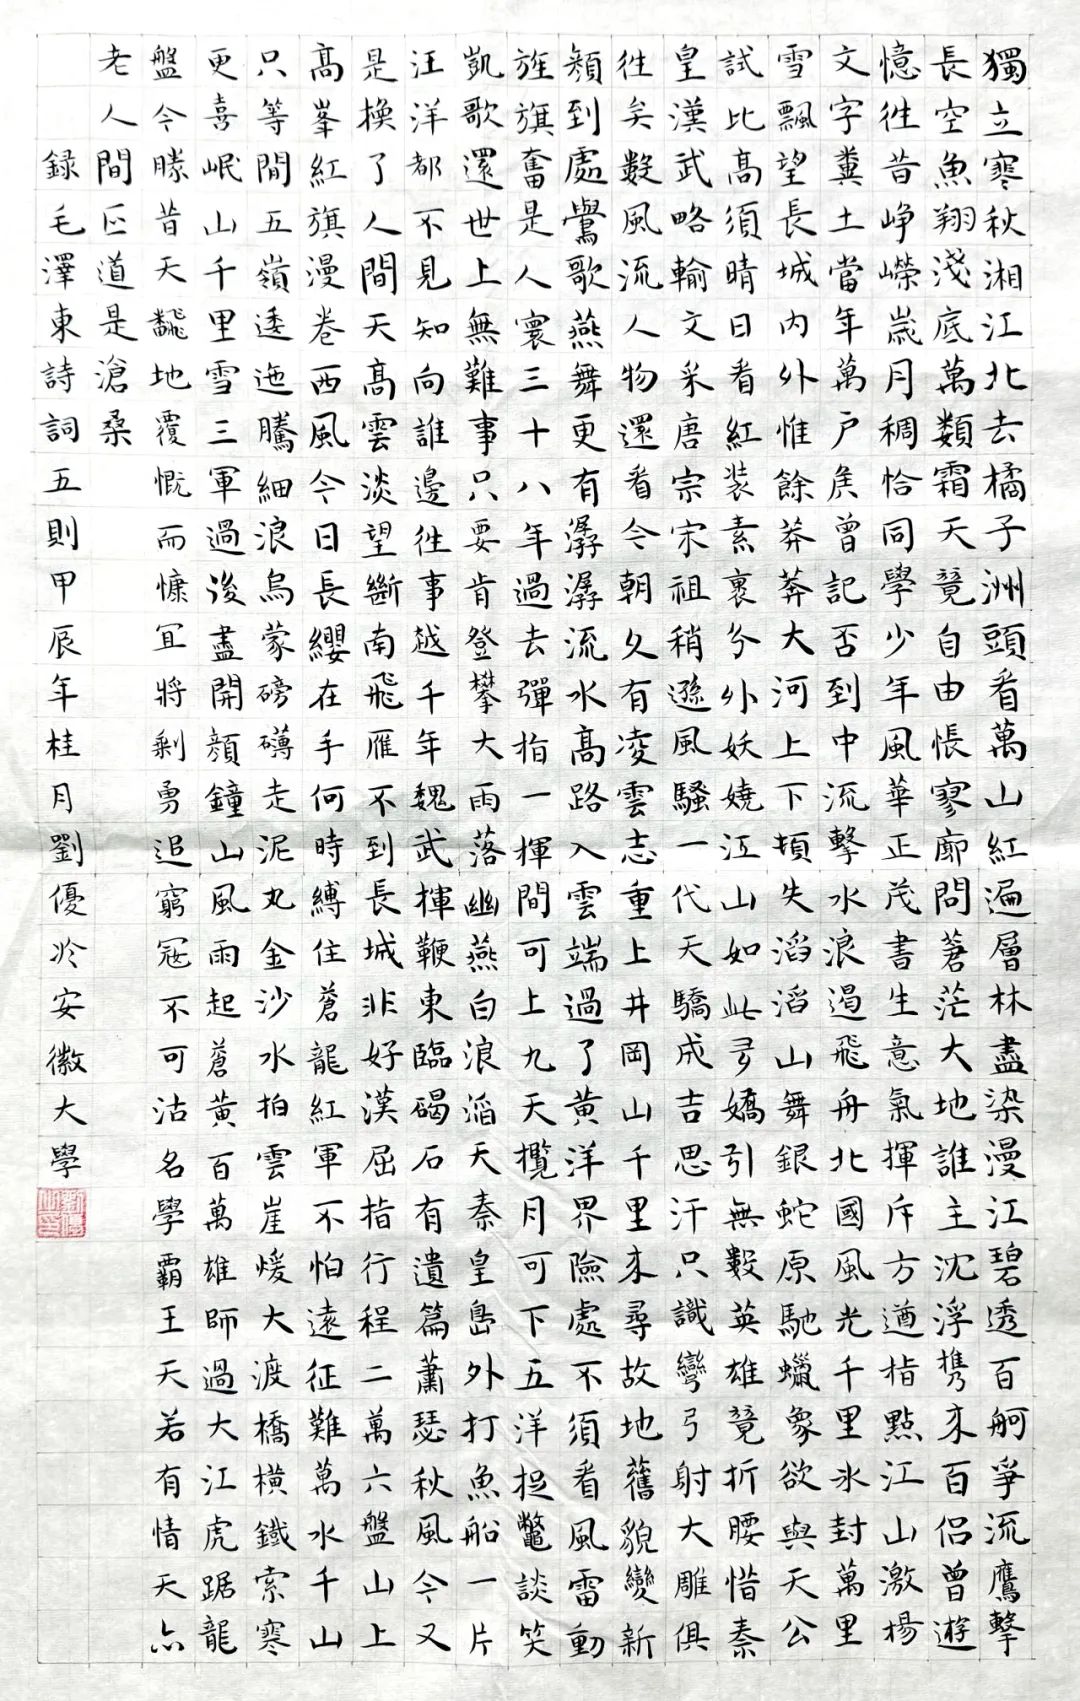 獨立寒秋湘江北去橘子洲頭看萬山紅遍層林盡染漫江碧透百舸爭流鷹擊
長空魚翔淺底萬類霜天競自由悵寥廓問蒼茫大地誰主沈浮攜來百侶曾遊
憶往昔崢嶸歲月稠恰同學少年風華正茂書生意氣揮斥方遒指點江山激揚
文字糞土當年萬戶侯曾記否到中流擊水浪遏飛舟北國風光千里冰封萬里
雪飄望長城内外惟餘莽莽大河上下頓失滔滔山舞銀蛇原馳蠟象欲與天公
試比高須晴日看紅装素裹分外妖嬈江山如此多嬌引無數英雄競折腰惜秦
皇漢武略輸文采唐宗宋祖稍遜風騷一代天驕成吉思汗只識彎弓射大雕俱
往矣數風流人物還看今朝久有凌雲志重上井岡山千里來尋故地舊貌變新
顏到處鶯歌燕舞更有潺潺流水高路入雲端過了黃洋界險處不須看風雷動
旌旗奮是人寰三十八年過去彈指一揮間可上九天攬月可下五洋捉鼈談笑
凱歌還世上無難事只要肯登攀大雨落幽燕白浪滔天秦皇島外打魚船一片
汪洋都不見知向誰邊往事越千年魏武揮鞭東臨碣石有遺篇蕭瑟秋風今又
是換了人間天高雲淡望斷南飛雁不到長城非好漢屈指行程二萬六盤山上
高峯紅旗漫卷西風今日長纓在手何時縛住蒼龍紅軍不怕遠征難萬水千山
只等閒五嶺逶迤騰細浪烏蒙磅礴走泥丸金沙水拍雲崖煖大渡橋橫鐵索寒
更喜岷山千里雪三軍過後盡開顏鐘山風雨起蒼黃百萬雄師過大江虎踞龍
盤今勝昔天翻地覆慨而慷宜將剩勇追窮寇不可沽名學霸王天若有情天亦
老人間正道是滄桑
録毛澤東詩詞五則甲辰年桂月劉優於安徽大學